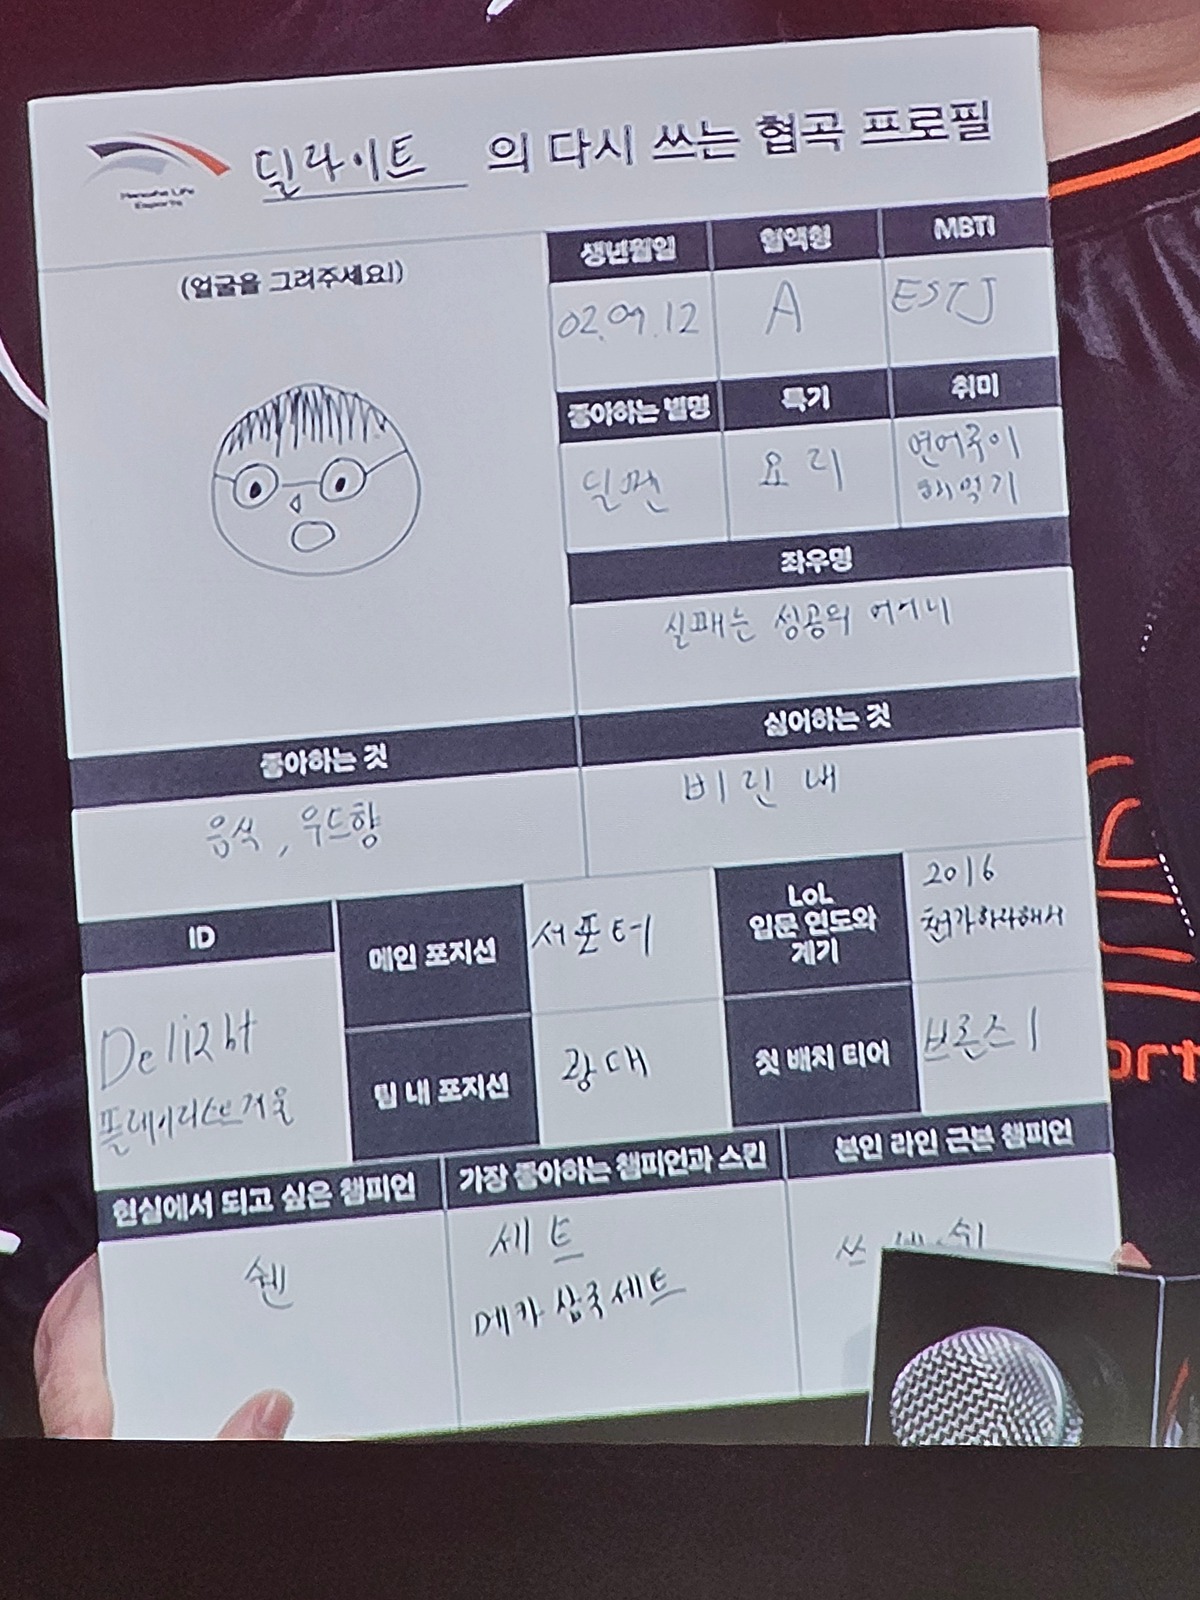 Hanwha Life
Esports
딜라이트 의 다시 쓰는 협곡 프로필
(얼굴을 그려주세요!)
생년월일
혈액형
MBTI
02.09.12
A
ESTJ
좋아하는 별명
특기
취미
딜짼
요리
연어구이
해먹기
좌우명
실패는 성공의 어머니
좋아하는 것
싫어하는 것
음식, 우드향
비린내
ID
Delight
플레이리스트겨울
메인 포지션
서포터
LoL
입문 연도와
계기
2016
친구가하라해서
팀 내 포지션
광대
첫 배치 티어
브론즈1
현실에서 되고 싶은 챔피언
가장 좋아하는 챔피언과 스킨
본인 라인 근본 챔피언
쉔
세트
메카 삼국세트
쓰
ort